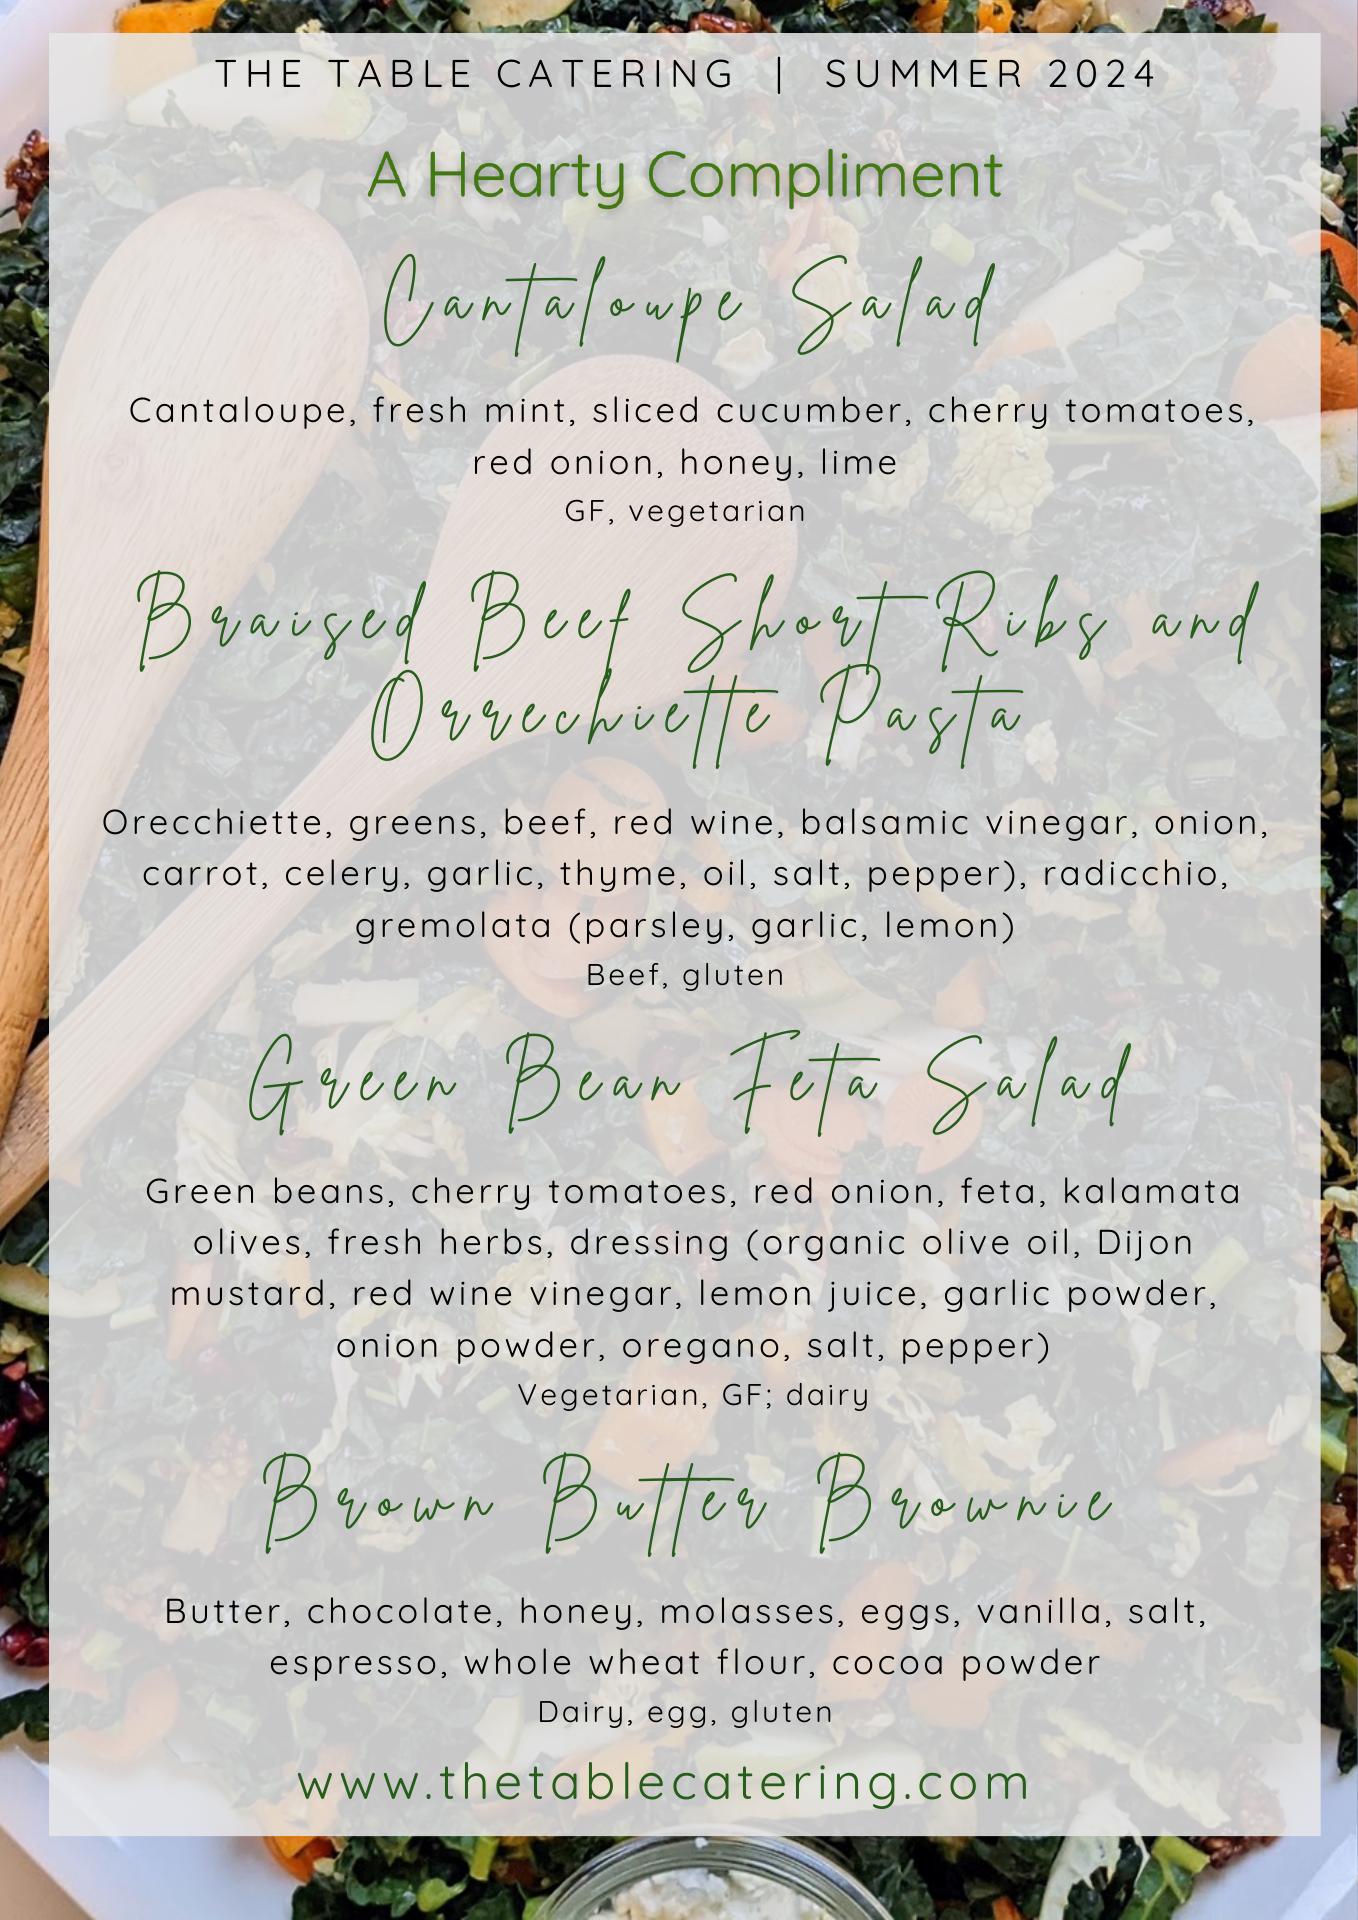 THE TABLE CATERING | SUMMER 2024
A Hearty Compliment
Cantaloupe Salad
Cantaloupe, fresh mint, sliced cucumber, cherry tomatoes,
red onion, honey, lime
GF, vegetarian
Braised Beef Short Ribs and
Orrechiette Pasta
Orecchiette, greens, beef, red wine, balsamic vinegar, onion,
carrot, celery, garlic, thyme, oil, salt, pepper), radicchio,
gremolata (parsley, garlic, lemon)
Beef, gluten
Green Bean Feta Salad
Green beans, cherry tomatoes, red onion, feta, kalamata
olives, fresh herbs, dressing (organic olive oil, Dijon
mustard, red wine vinegar, lemon juice, garlic powder,
onion powder, oregano, salt, pepper)
Vegetarian, GF; dairy
Brown Butter Brownie
Butter, chocolate, honey, molasses, eggs, vanilla, salt,
espresso, whole wheat flour, cocoa powder
Dairy, egg, gluten
www.thetablecatering.com